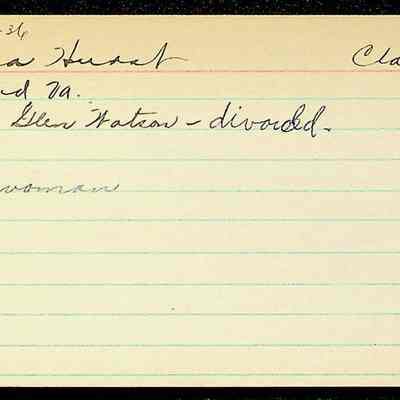 -36
a Hurst Cla
d Va.
Glen Watson - divorced.
woman